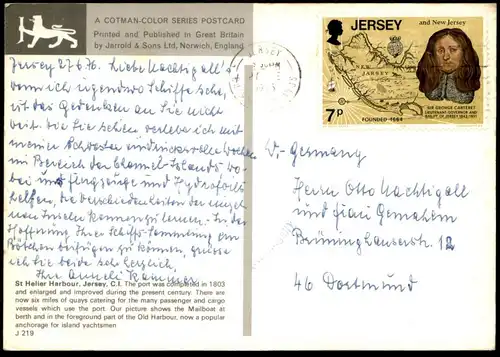 A COTMAN-COLOR SERIES POSTCARD
Printed and Published in Great Britain
by Jarrold & Sons Ltd, Norwich, England
Jersey 27.6.76. Liebe Nachtigall's!
wenn ich irgendwo Schiffe sehe,
ist das Gedenken an Sie nicht
weit. Wie Sie sehen, verlebe ich mit
meiner Schwester eindrucksvolle Wochen
im Bereich der Channel-Islands wo-
bei uns Flugzeuge und Hydrofoils
helfen, die Verschiedenheiten der
Inseln kennenzulernen. In der
Hoffnung Ihrer Schiffs-Sammlung ein
beifügen zu können, grüsse
ich Sie beide sehr herzlich.
Ihre Anneli
St Helier Harbour, Jersey, C.I. The port was completed in 1803
and enlarged and improved during the present century. There are
now six miles of quays catering for the many passenger and cargo
vessels which use the port. Our picture shows the Mailboat at
berth and in the foreground part of the Old Harbour, now a popular
anchorage for island yachtsmen
J 219
JERSEY
and New Jersey
NEW JERSEY
SIR GEORGE CARTERET
LIEUTENANT-GOVERNOR AND
BAILIFF OF JERSEY
7p
FOUNDED 1664
JERSEY
W.-Germany
Herrn Otto Nachtigall
und Frau Gemahlin
Brünninghauserstr. 12
46 Dortmund